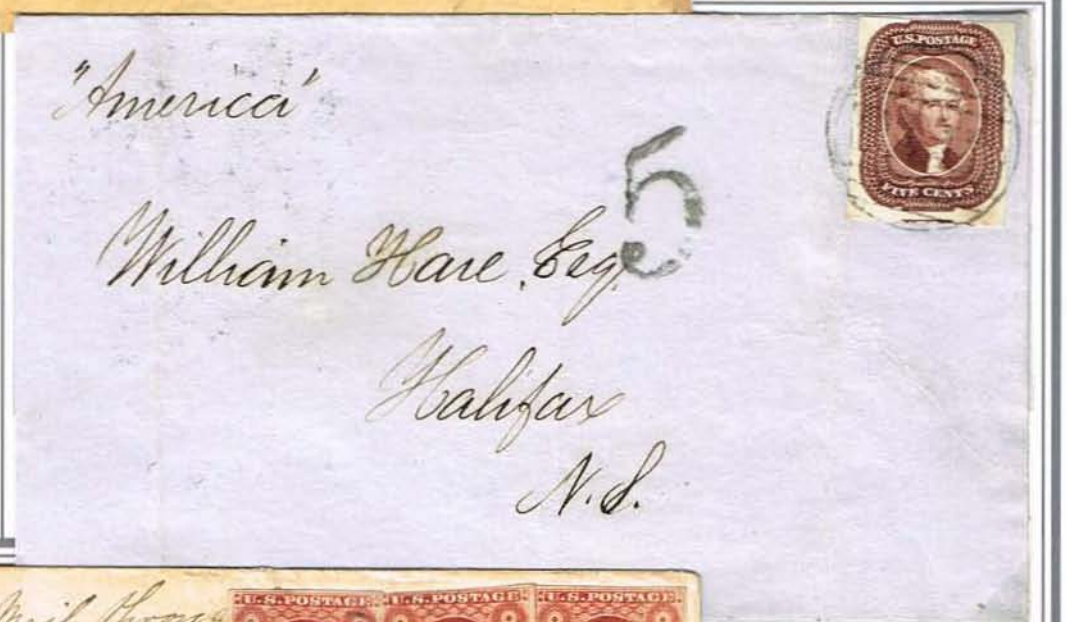 "America"
U.S. POSTAGE
FIVE CENTS
5
William Hare Esq.
Halifax
N.S.
Mail
U.S. POSTAGE U.S. POSTAGE U.S. POSTAGE